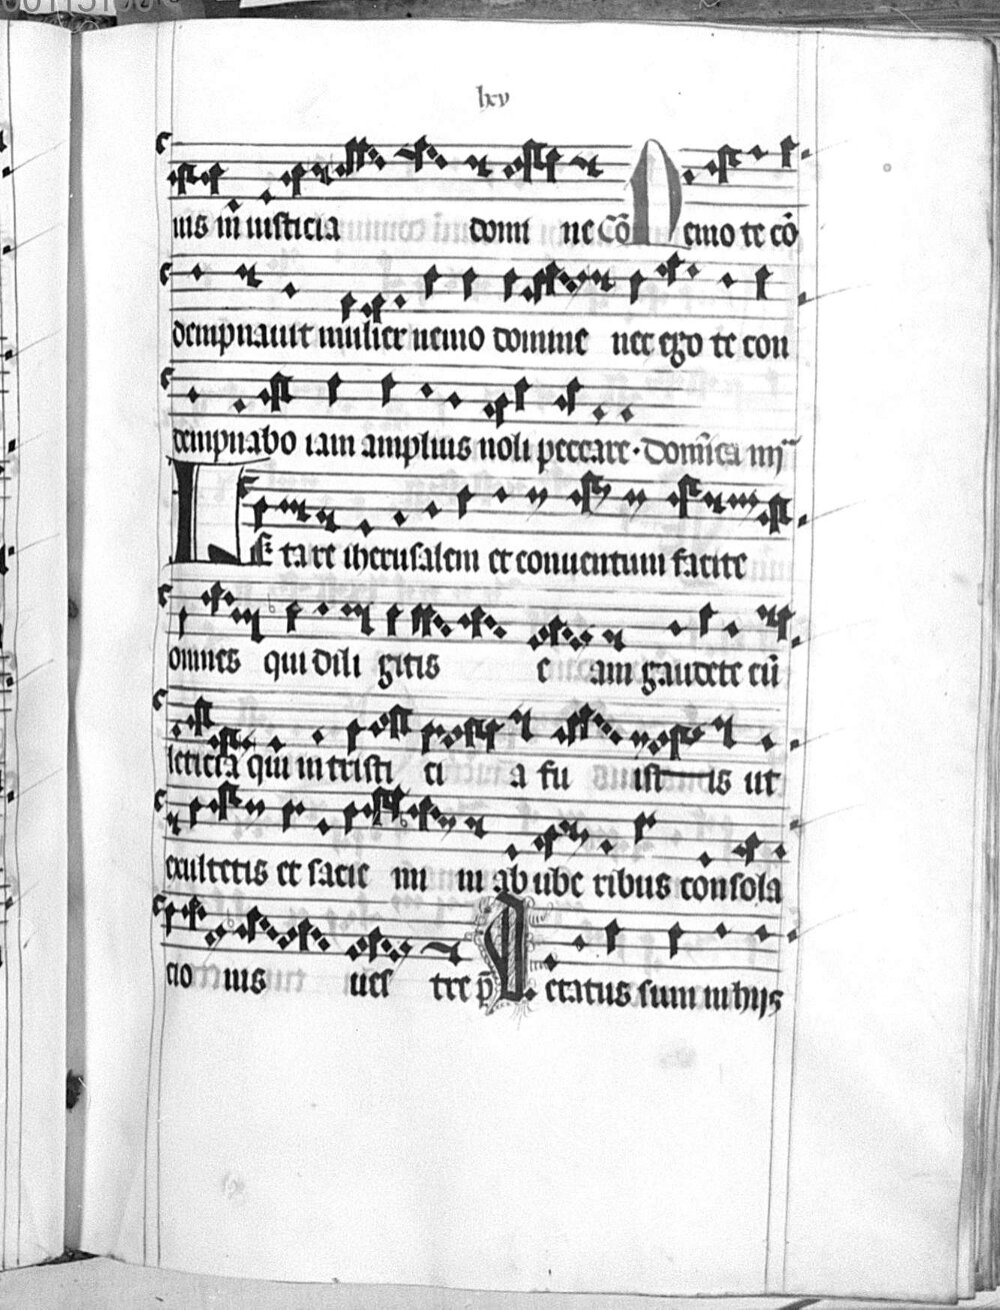 lxv
uis in iusticia domi ne Cō Nemo te cō
dempnauit mulier nemo domine nec ego te con
dempnabo iam amplius noli peccare · Domīca iiij
Letare iherusalem et conuentum facite
omnes qui dili gitis e am gaudete cū
leticia qui in tristi ci a fu istis ut
exultetis et sacie mi ni ab ube ribus consola
cio nis ues tre p̄ Letatus sum in hijs